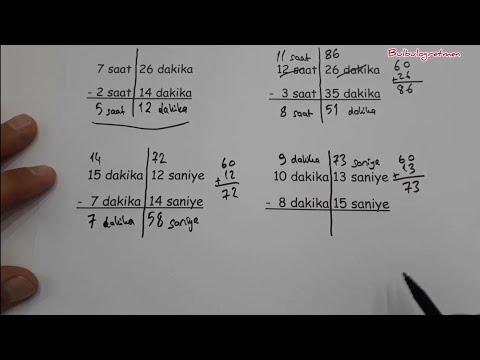 Bulbulogretmen
7 saat 26 dakika
- 2 saat 14 dakika
5 saat 12 dakika
11 saat 86
12 saat 26 dakika
- 3 saat 35 dakika
8 saat 51 dakika
60
+26
86
14 72
15 dakika 12 saniye
- 7 dakika 14 saniye
7 dakika 58 saniye
60
+12
72
9 dakika 73 saniye
10 dakika 13 saniye
- 8 dakika 15 saniye
60
+13
73